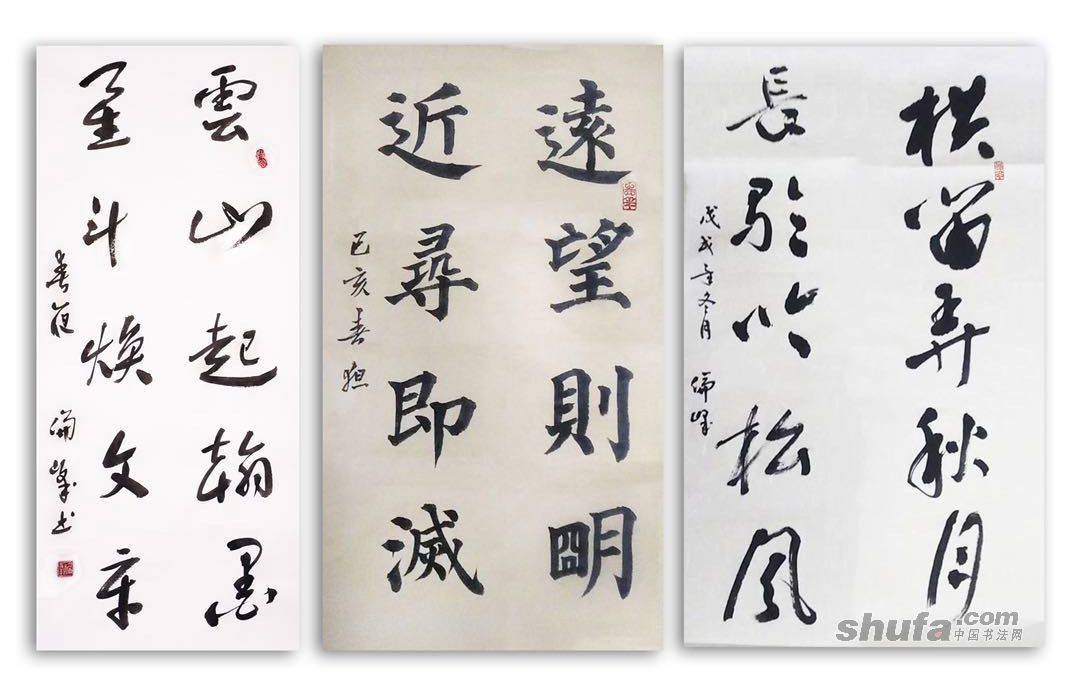 雲山起翰墨
星斗焕文章
春
峰书
遠望則明
近尋即滅
己亥春
横笛弄秋月
長歌吟松風
戊戌年冬月
峰
shufa.com
中国书法网